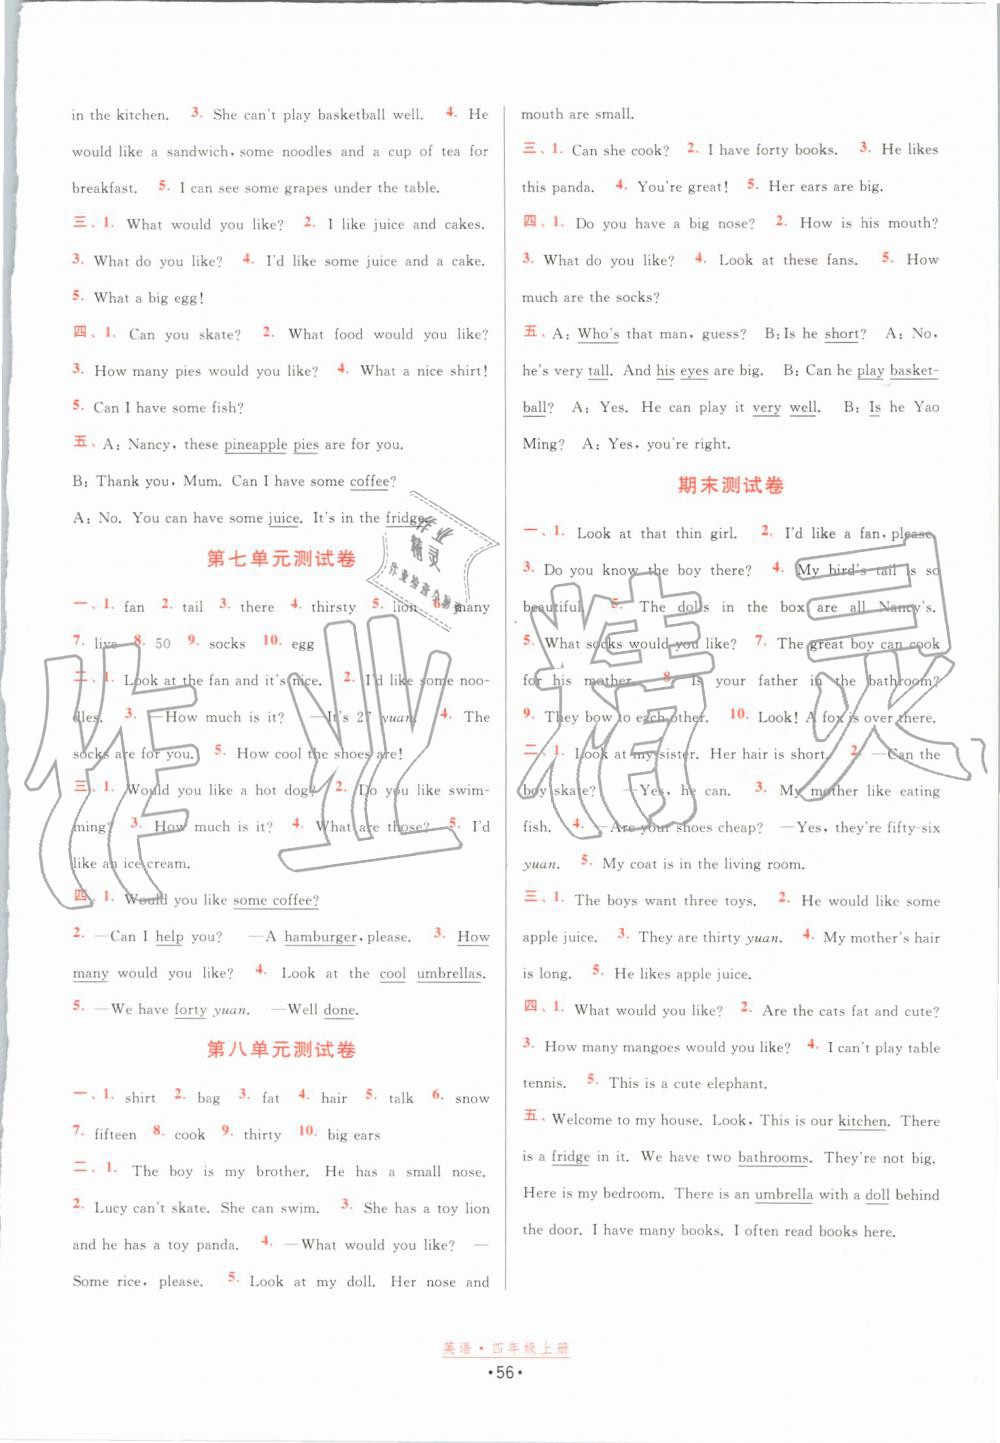 in the kitchen. 3. She can't play basketball well. 4. He
would like a sandwich, some noodles and a cup of tea for
breakfast. 5. I can see some grapes under the table.
三、1. What would you like? 2. I like juice and cakes.
3. What do you like? 4. I'd like some juice and a cake.
5. What a big egg!
四、1. Can you skate? 2. What food would you like?
3. How many pies would you like? 4. What a nice shirt!
5. Can I have some fish?
五、A: Nancy, these pineapple pies are for you.
B: Thank you, Mum. Can I have some coffee?
A: No. You can have some juice. It's in the fridge.
第七单元测试卷
一、1. fan 2. tail 3. there 4. thirsty 5. lion 6. many
7. live 8. 50 9. socks 10. egg
二、1. Look at the fan and it's nice. 2. I'd like some noo-
dles. 3. —How much is it? —It's 27 yuan. 4. The
socks are for you. 5. How cool the shoes are!
三、1. Would you like a hot dog? 2. Do you like swim-
ming? 3. How much is it? 4. What are those? 5. I'd
like an ice cream.
四、1. Would you like some coffee?
2. —Can I help you? —A hamburger, please. 3. How
many would you like? 4. Look at the cool umbrellas.
5. —We have forty yuan. —Well done.
第八单元测试卷
一、1. shirt 2. bag 3. fat 4. hair 5. talk 6. snow
7. fifteen 8. cook 9. thirty 10. big ears
二、1. The boy is my brother. He has a small nose.
2. Lucy can't skate. She can swim. 3. She has a toy lion
and he has a toy panda. 4. —What would you like? —
Some rice, please. 5. Look at my doll. Her nose and
mouth are small.
三、1. Can she cook? 2. I have forty books. 3. He likes
this panda. 4. You're great! 5. Her ears are big.
四、1. Do you have a big nose? 2. How is his mouth?
3. What do you like? 4. Look at these fans. 5. How
much are the socks?
五、A: Who's that man, guess? B: Is he short? A: No,
he's very tall. And his eyes are big. B: Can he play basket-
ball? A: Yes. He can play it very well. B: Is he Yao
Ming? A: Yes, you're right.
期末测试卷
一、1. Look at that thin girl. 2. I'd like a fan, please.
3. Do you know the boy there? 4. My bird's tail is so
beautiful. 5. The dolls in the box are all Nancy's.
5. What socks would you like? 7. The great boy can cook
for his mother. 8. Is your father in the bathroom?
9. They bow to each other. 10. Look! A fox is over there.
二、1. Look at my sister. Her hair is short. 2. —Can the
boy skate? —Yes, he can. 3. My mother like eating
fish. 4. —Are your shoes cheap? —Yes, they're fifty-six
yuan. 5. My coat is in the living room.
三、1. The boys want three toys. 2. He would like some
apple juice. 3. They are thirty yuan. 4. My mother's hair
is long. 5. He likes apple juice.
四、1. What would you like? 2. Are the cats fat and cute?
3. How many mangoes would you like? 4. I can't play table
tennis. 5. This is a cute elephant.
五、Welcome to my house. Look, This is our kitchen. There
is a fridge in it. We have two bathrooms. They're not big.
Here is my bedroom. There is an umbrella with a doll behind
the door. I have many books. I often read books here.
作业精灵
作业
精灵
英语·四年级上册
·56·